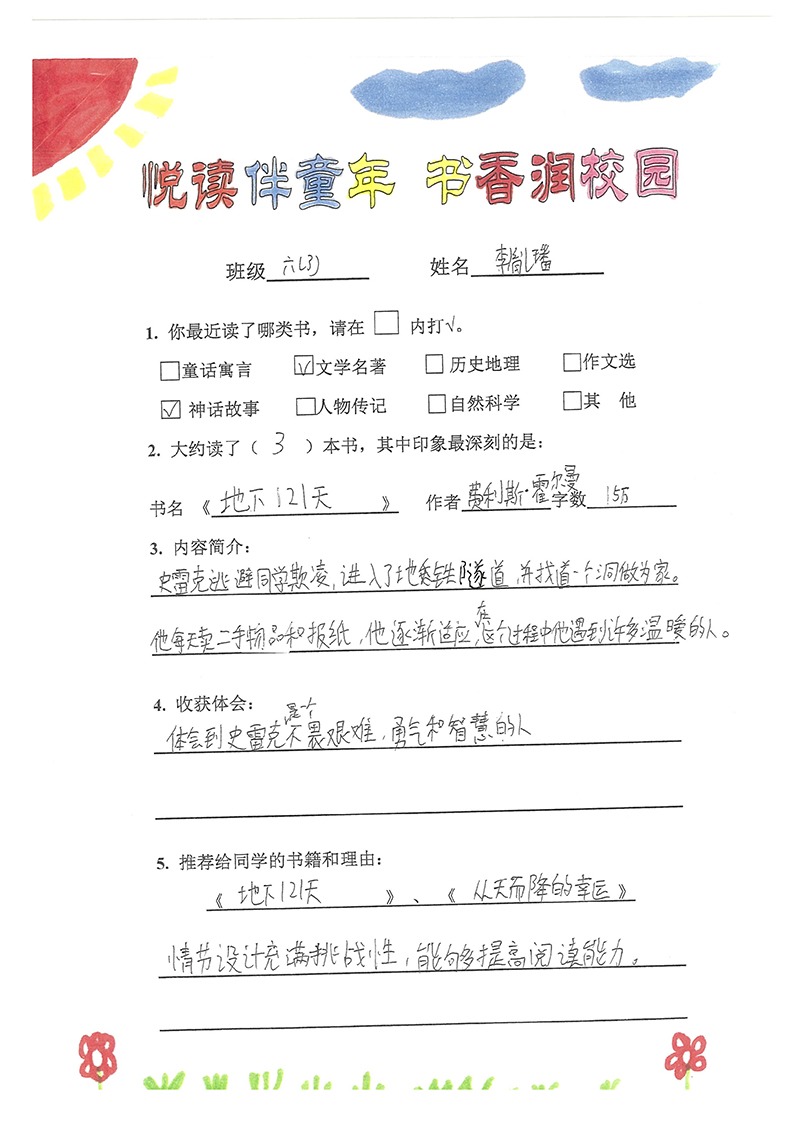 悦读伴童年 书香润校园
班级 六(3) 姓名 李 璠
1. 你最近读了哪类书，请在 □ 内打√。
□童话寓言 ☑文学名著 □历史地理 □作文选
☑神话故事 □人物传记 □自然科学 □其 他
2. 大约读了（ 3 ）本书，其中印象最深刻的是：
书名 《 地下121天 》 作者 费利斯·霍尔曼 字数 15万
3. 内容简介：
史雷克逃避同学欺凌,进入了地铁隧道,并找道一个洞做为家。
他每天卖二手物品和报纸，他逐渐适应,在这个过程中他遇到许多温暖的人。
4. 收获体会：
体会到史雷克是个不畏艰难,勇气和智慧的人
5. 推荐给同学的书籍和理由：
《 地下121天 》、《 从天而降的幸运 》
情节设计充满挑战性，能够多提高阅读能力。